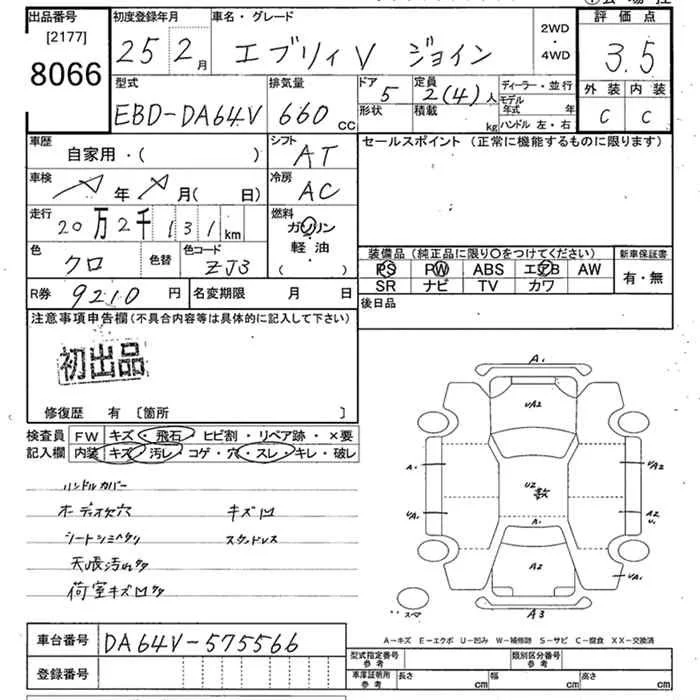 出品番号 初度登録年月 車名・グレード 評価点
[2177] 2WD
8066 25 2月 エブリィV ジョイン ・ 3.5
4WD
型式 排気量 ドア 定員 ディーラー・並行 外装 内装
EBD-DA64V 660cc 5 2(4)人 モデル年式 年 C C
形状 積載 kg ハンドル 左・右
車歴 シフト セールスポイント (正常に機能するものに限ります)
自家用・( ) AT
車検 年 月( 日) 冷房 AC
走行 20万2千131km 燃料 ガソリン
軽油
( )
色 クロ 色替 色コード ZJ3
装備品(純正品に限り〇をつけてください) 新車保証書
PS PW ABS エアB AW 有・無
SR ナビ TV カワ
R券 9210円 名変期限 月 日 後日品
注意事項申告欄(不具合内容等は具体的に記入して下さい)
初出品
修復歴 有 〔箇所 〕
検査員 FW キズ・飛石・ヒビ割・リペア跡・×要
記入欄 内装 キズ・汚レ・コゲ・穴・スレ・キレ・破レ
ハンドルカバー
オーディオ欠穴 キズ凹
シートシミヘタリ スタッドレス
天張汚れ
荷室キズ凹
A1
UA2
A1 UA2
U2
UA1 A1 A2
U1
A2 UA1
スペア A3
A-キズ E-エクボ U-凹み W-補修跡 S-サビ C-腐食 XX-交換済
車台番号 DA64V-575566
登録番号
型式指定番号 参考 類別区分番号 参考
車庫証明用 参考 長さ cm 幅 cm 高さ cm